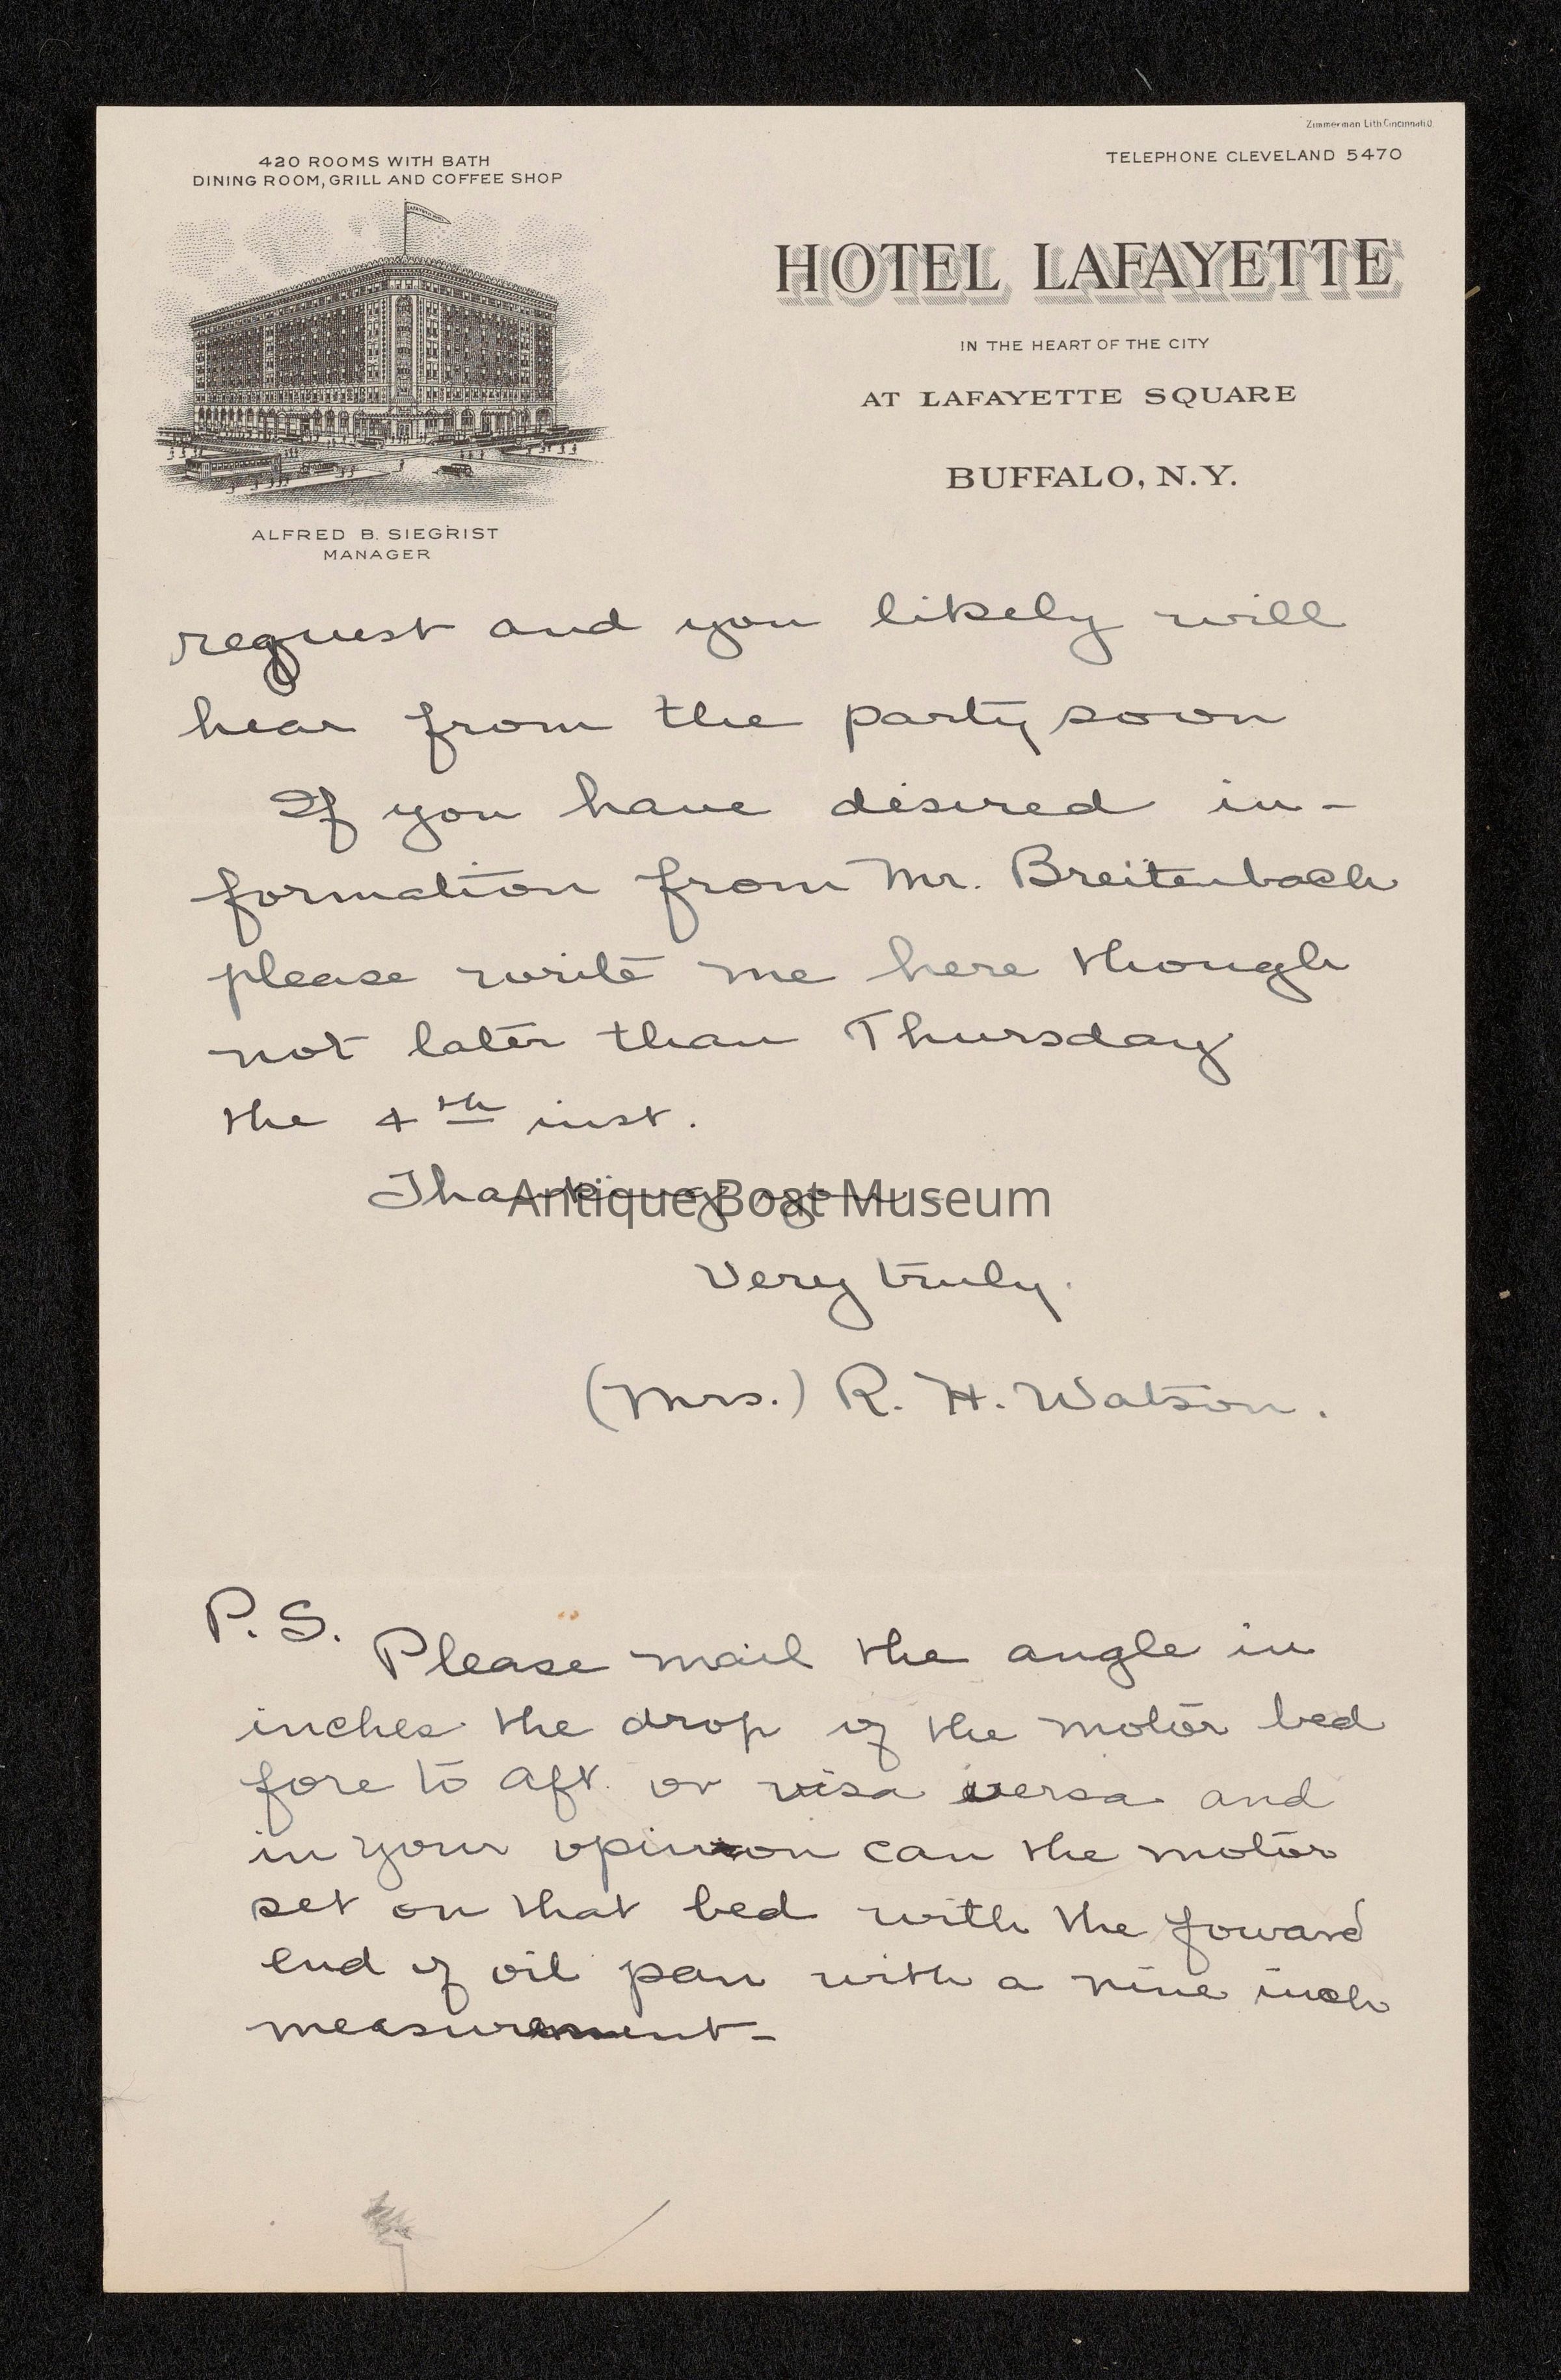 Zimmerman Lith. Cincinnati O.
420 ROOMS WITH BATH
DINING ROOM, GRILL AND COFFEE SHOP
TELEPHONE CLEVELAND 5470
HOTEL LAFAYETTE
IN THE HEART OF THE CITY
AT LAFAYETTE SQUARE
BUFFALO, N.Y.
ALFRED B. SIEGRIST
MANAGER
request and you likely will
hear from the party soon
If you have desired in-
formation from Mr. Breitenbach
please write me here though
not later than Thursday
the 4th inst.
Thanking you -
Antique Boat Museum
Very truly.
(Mrs.) R. H. Watson.
P. S.
Please mail the angle in
inches the drop of the motor bed
fore to aft. or visa versa and
in your opinion can the motor
set on that bed with the foward
end of oil pan with a nine inch
measurement-